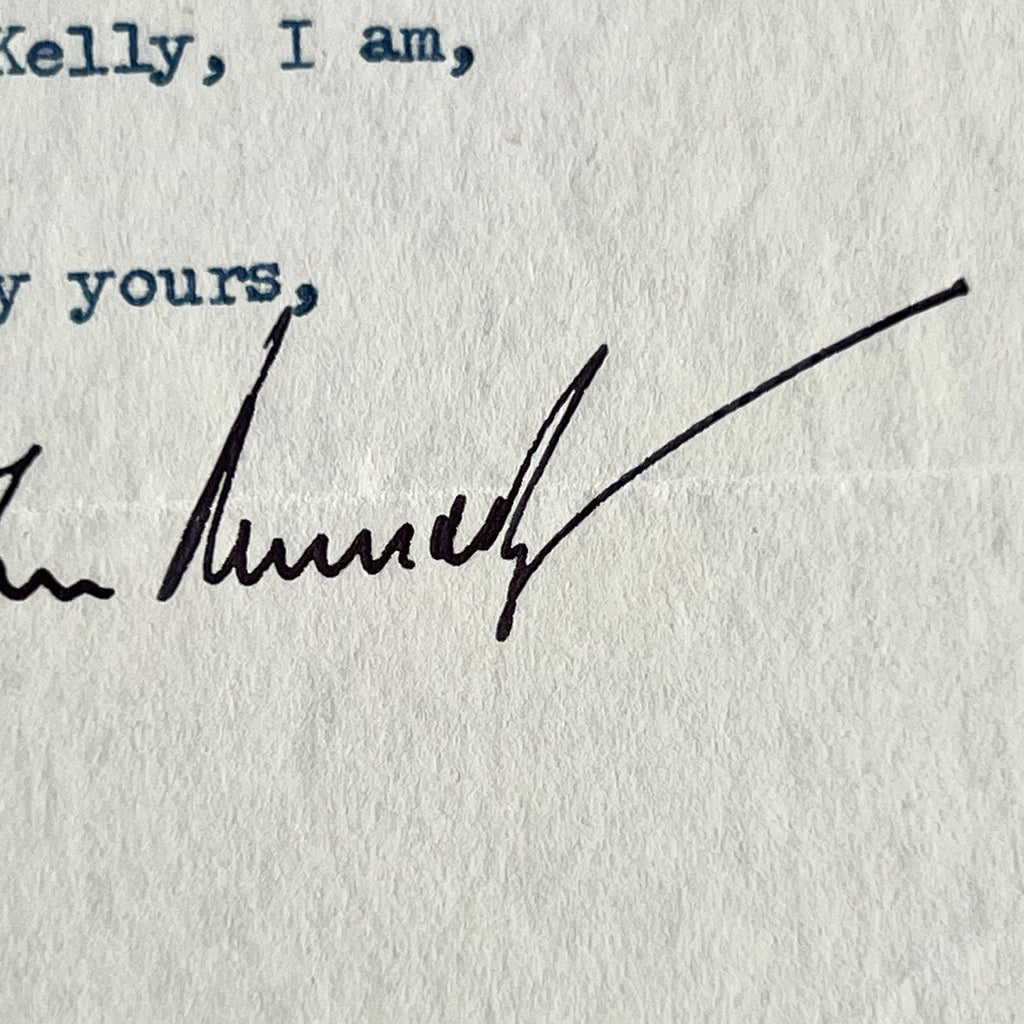 Kelly, I am,
y yours,
Kennedy